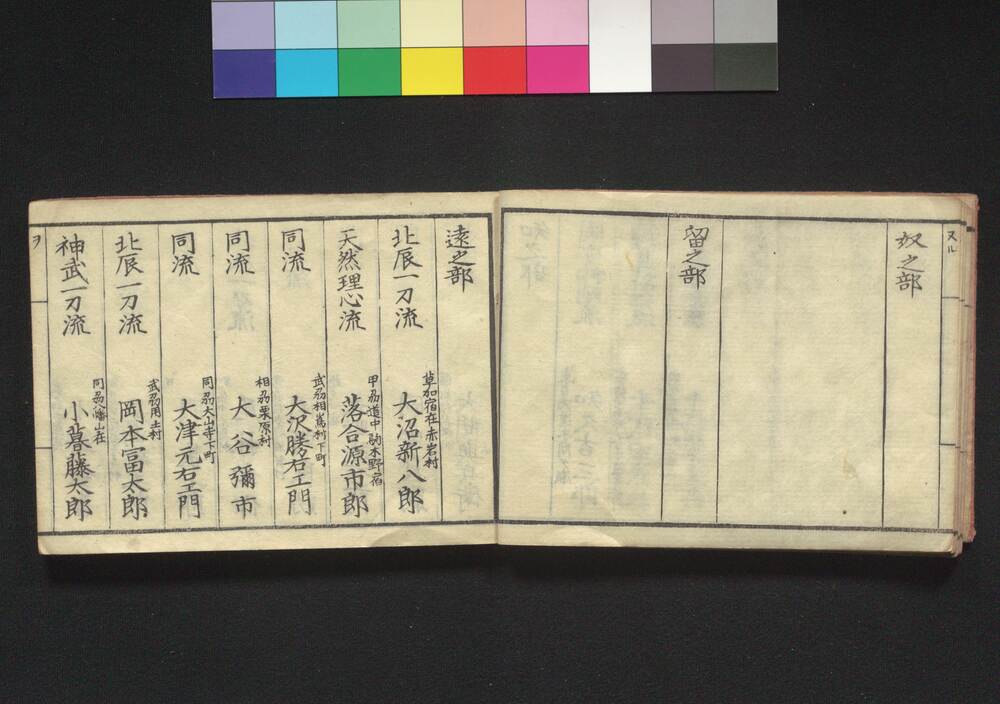 ヌル
奴之部
留之部
遠之部
北辰一刀流
草加宿在赤岩村
大沼新八郎
天然理心流
甲刕道中駒木野宿
落合源市郎
同流
武刕相嶌村下町
大沢勝右エ門
同流
相刕栗原村
大谷彌市
同流
同刕大山寺下町
大津元右エ門
北辰一刀流
武刕用土村
岡本冨太郎
神武一刀流
同刕八幡山在
小暮藤太郎
ヲ